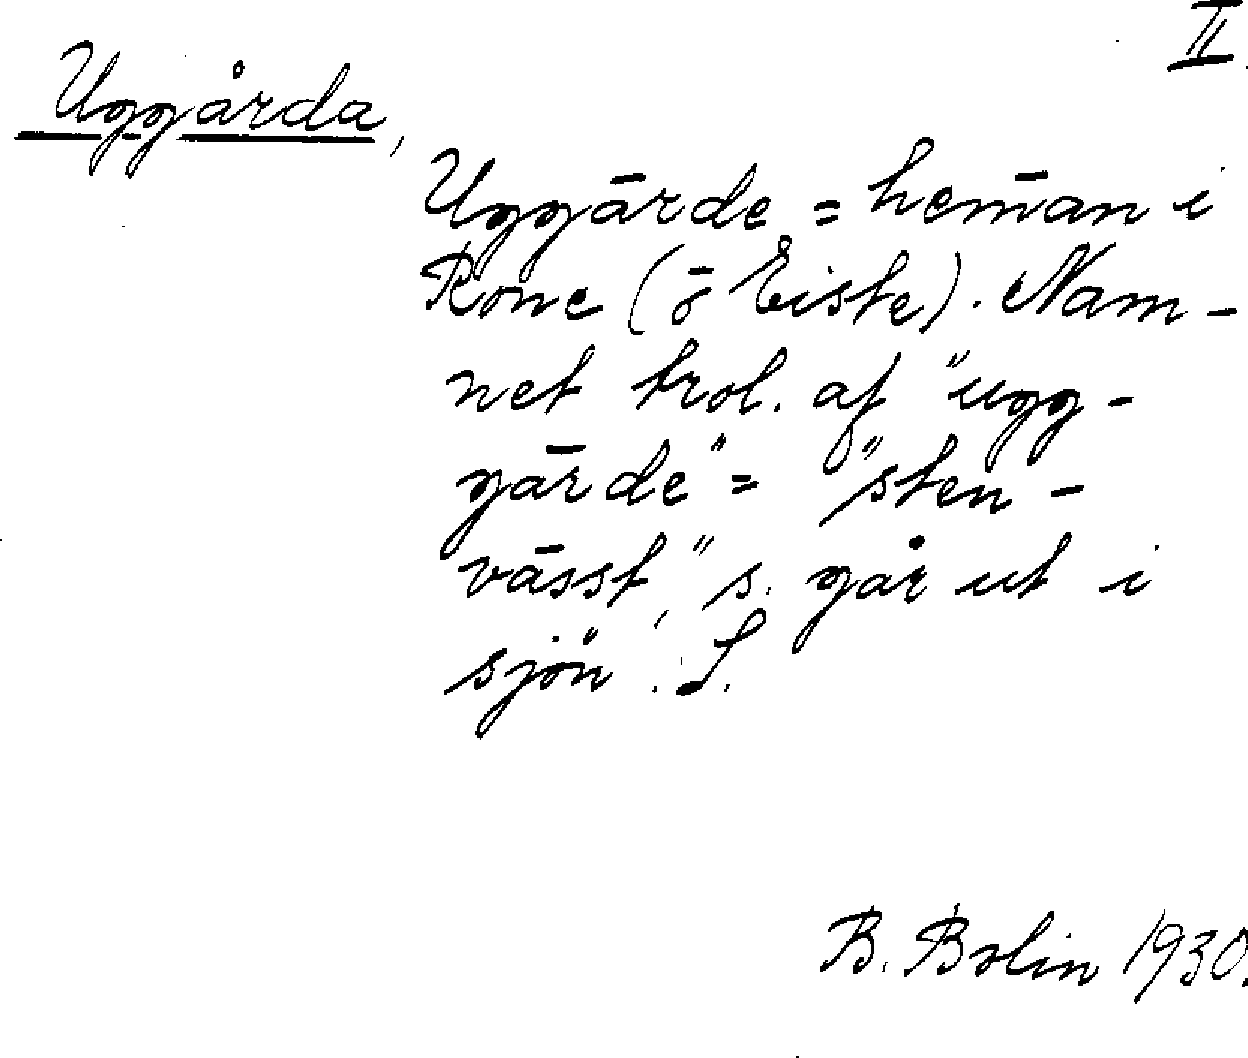 II.
Uggårda,
Uggārde = hem̄an i
Rone (ō Eiste). Nam-
net trol. af "ugg-
gārde" = "sten-
vāsst", s. går ut i
sjön. S.
B. Bolin 1930.